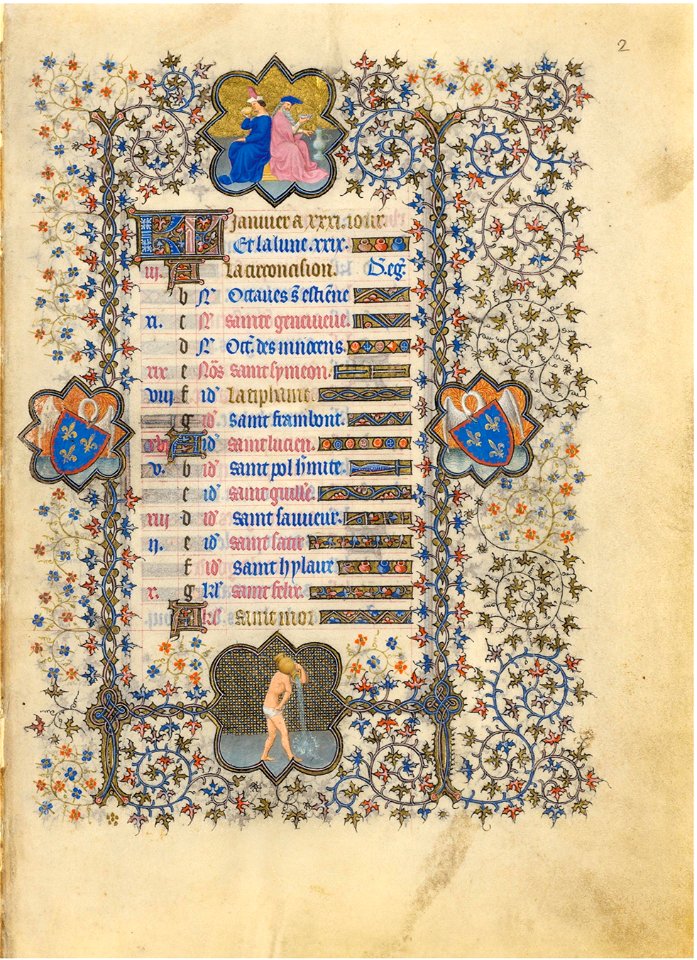 2
Januier a xxxi. iours
Et la lune. xxix.
iii. A La circoncision. D. eg͂.
b N͛ Octaues s͛ estiẽne
xi. c N͛ sainte geneuieue.
d N͛ Oct͛. des innocens.
xix e Nõs saint symeon.
viii f id͛ La tiphaine
g id͛ saint frambout.
xvi A id͛ saint lucien.
v. b id͛ saint pol h̾mite.
c id͛ saint guill͛e.
xiii d id͛ saint sauueur.
ii. e id͛ saint satir
f id͛ saint hylaire
x. g kl͛s saint felix.
A kl͛s saint mor